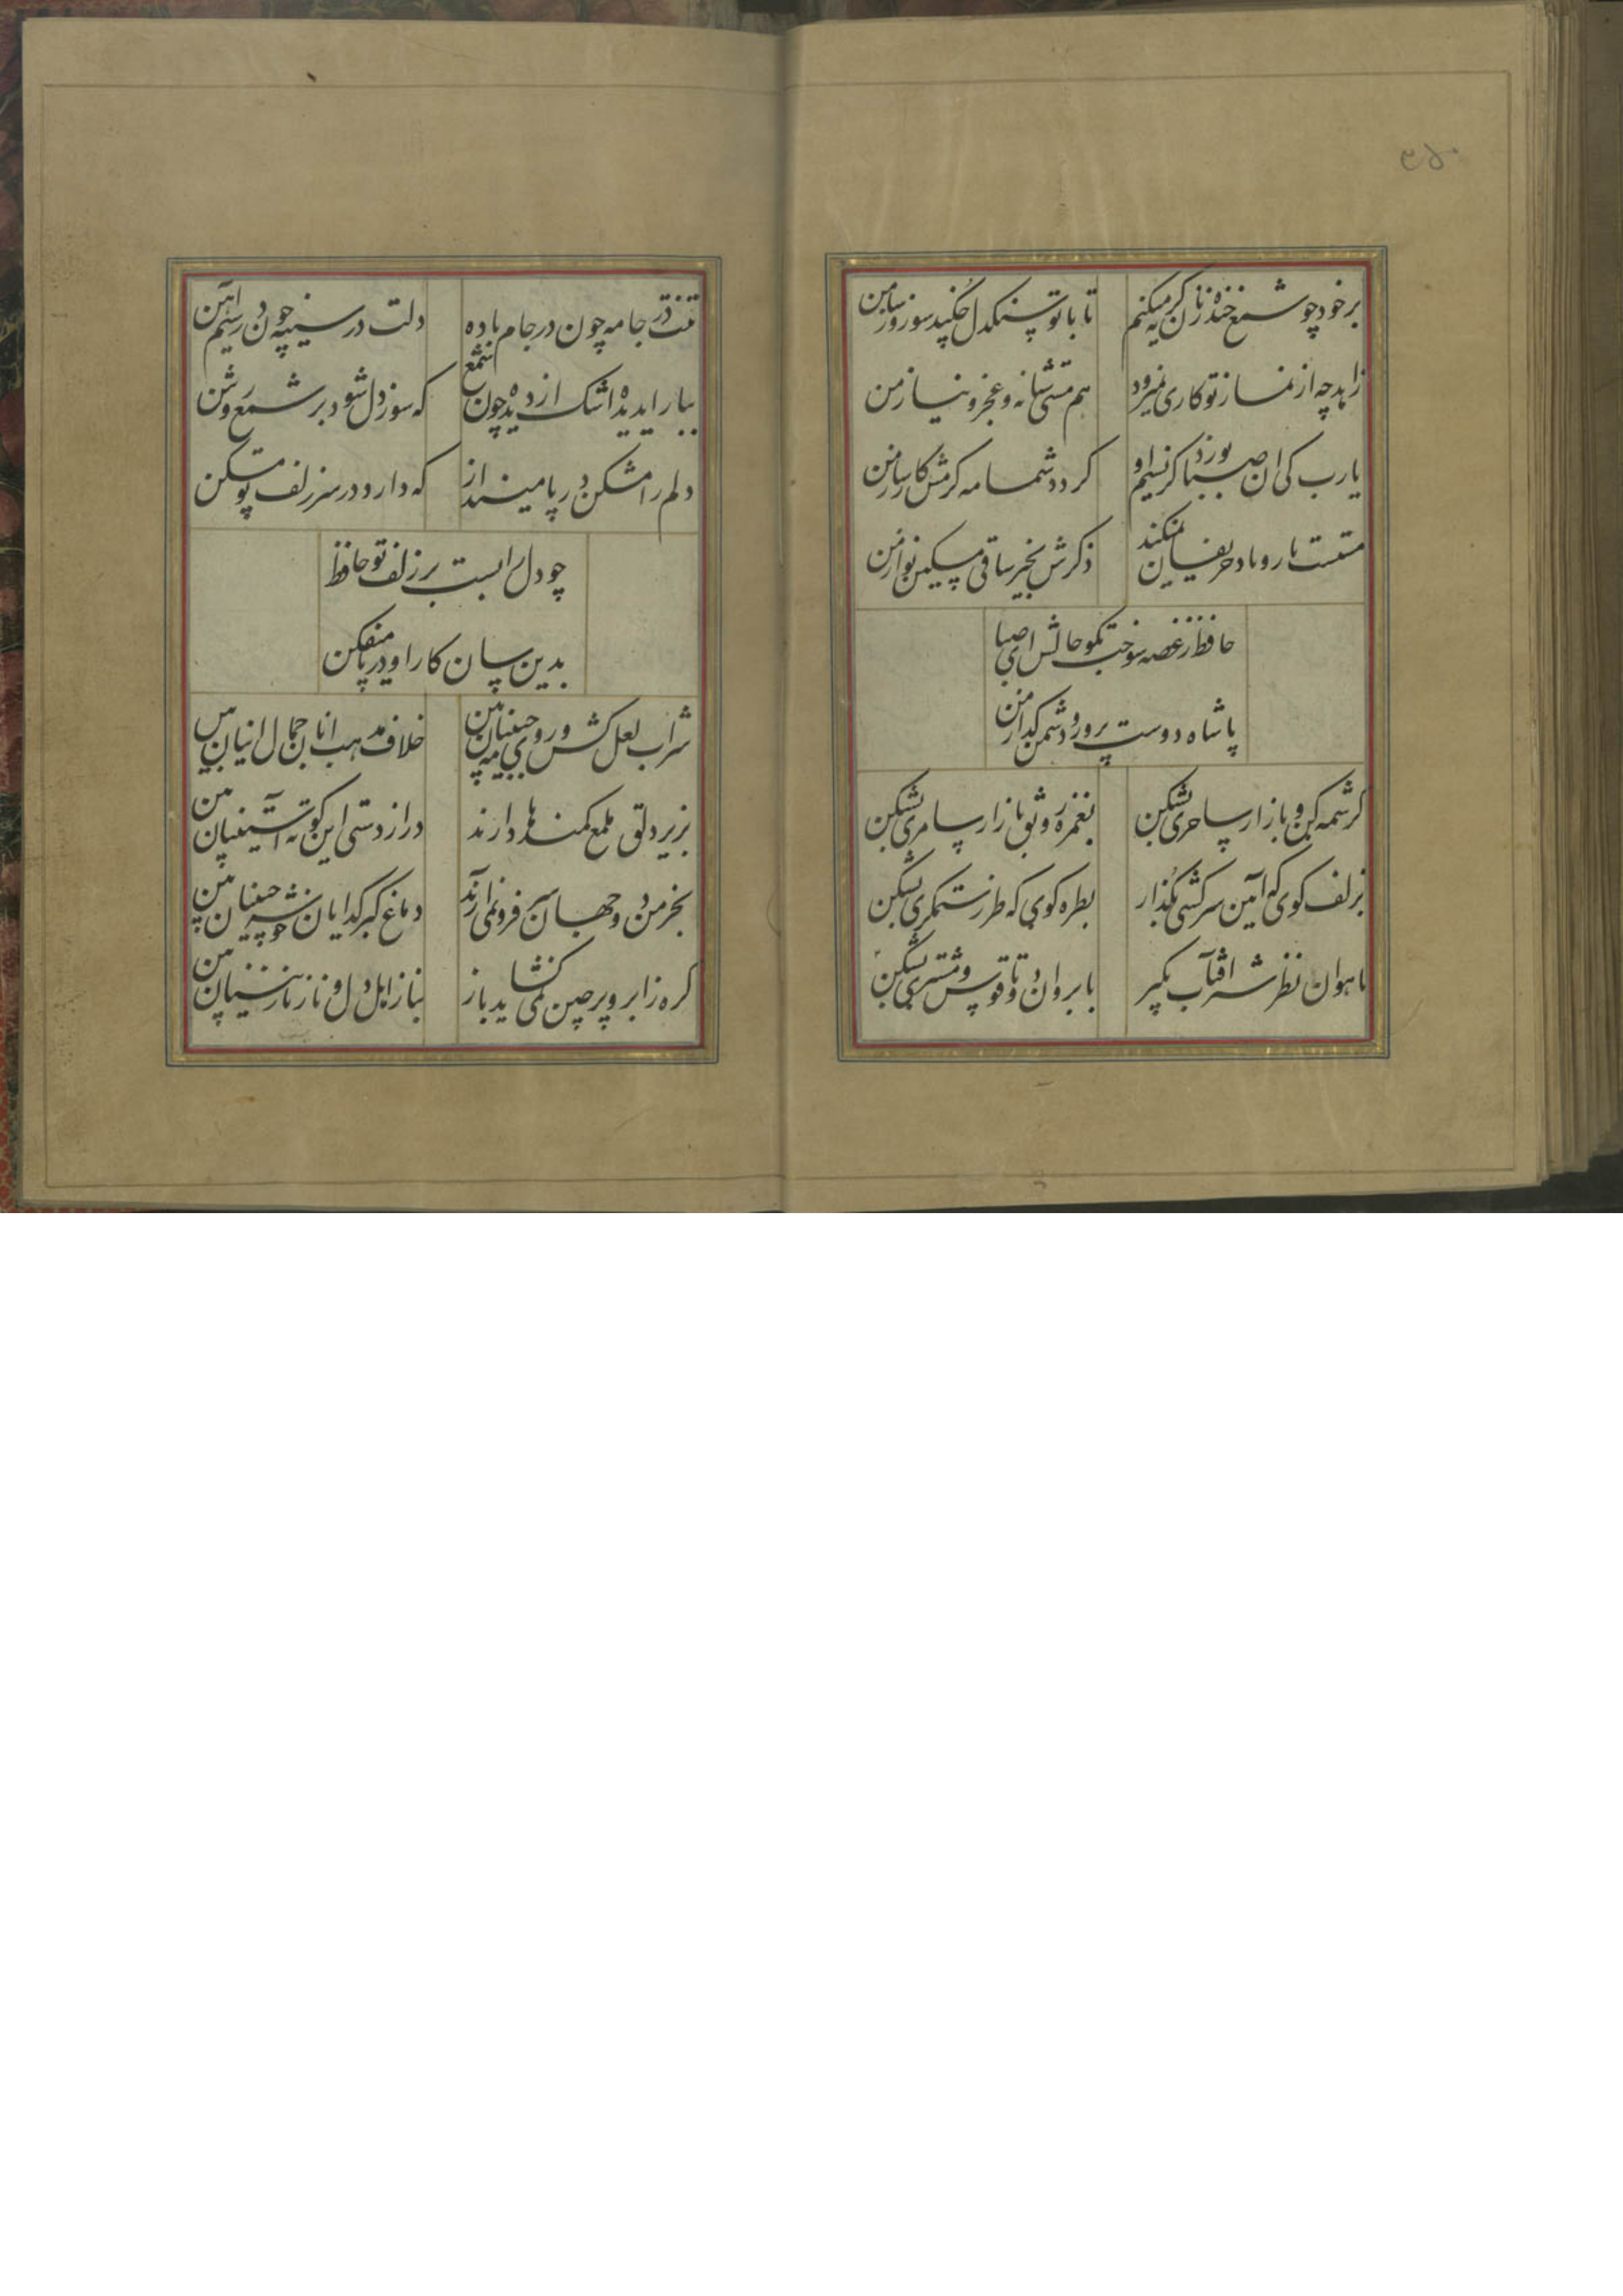 ۳۵۰
بر خود چو شمع خنده زنان گریه میکنم تا با تو سنگدل چکند سوز و ساز من
زاهد چه از نماز تو کاری نمیرود هم مستی شبانه و عجز و نیاز من
یا رب کی ان صبا بوزد کز نسیم او کردد شمامه کرمش کارساز من
مستست یار و یاد حریفان نمیکند ذکرش بخیر ساقی مسکین نواز من
حافظ ز غصه سوخت بگو حالش ای صبا
با شاه دوست پرور دشمن کداز من
کرشمه کن و بازار ساحری بشکن بغمزه رونق بازار سامری بشکن
بزلف کوی که آیین سرکشی بگذار بطره کوی که طرز ستمکری بشکن
باهوان نظر شیر افتاب بکیر بابروان دوتا قوس مشتری بشکن
تنت در جامه چون در جام باده دلت در سینه چون در سیم اهن
ببار ای دیده اشک از دیده چون شمع که سوز دل شود بر شمع روشن
دلم را مشکن و در پا مینداز که دارد در سر زلف تو مسکن
چو دل را بست بر زلف تو حافظ
بدین سان کار او در پا میفکن
شراب لعل کش و روی مه جبینان بین خلاف مذهب انان جمال اینان بین
بزیر دلق ملمع کمندها دارند دراز دستی این کوته آستینان بین
بخرمن دو جهان سر فرو نمی ارند دماغ کبر کدایان خوشه چینان بین
کره ز ابرو پر چین نمی کشاید باز نیاز اهل دل و ناز نازنینان بین